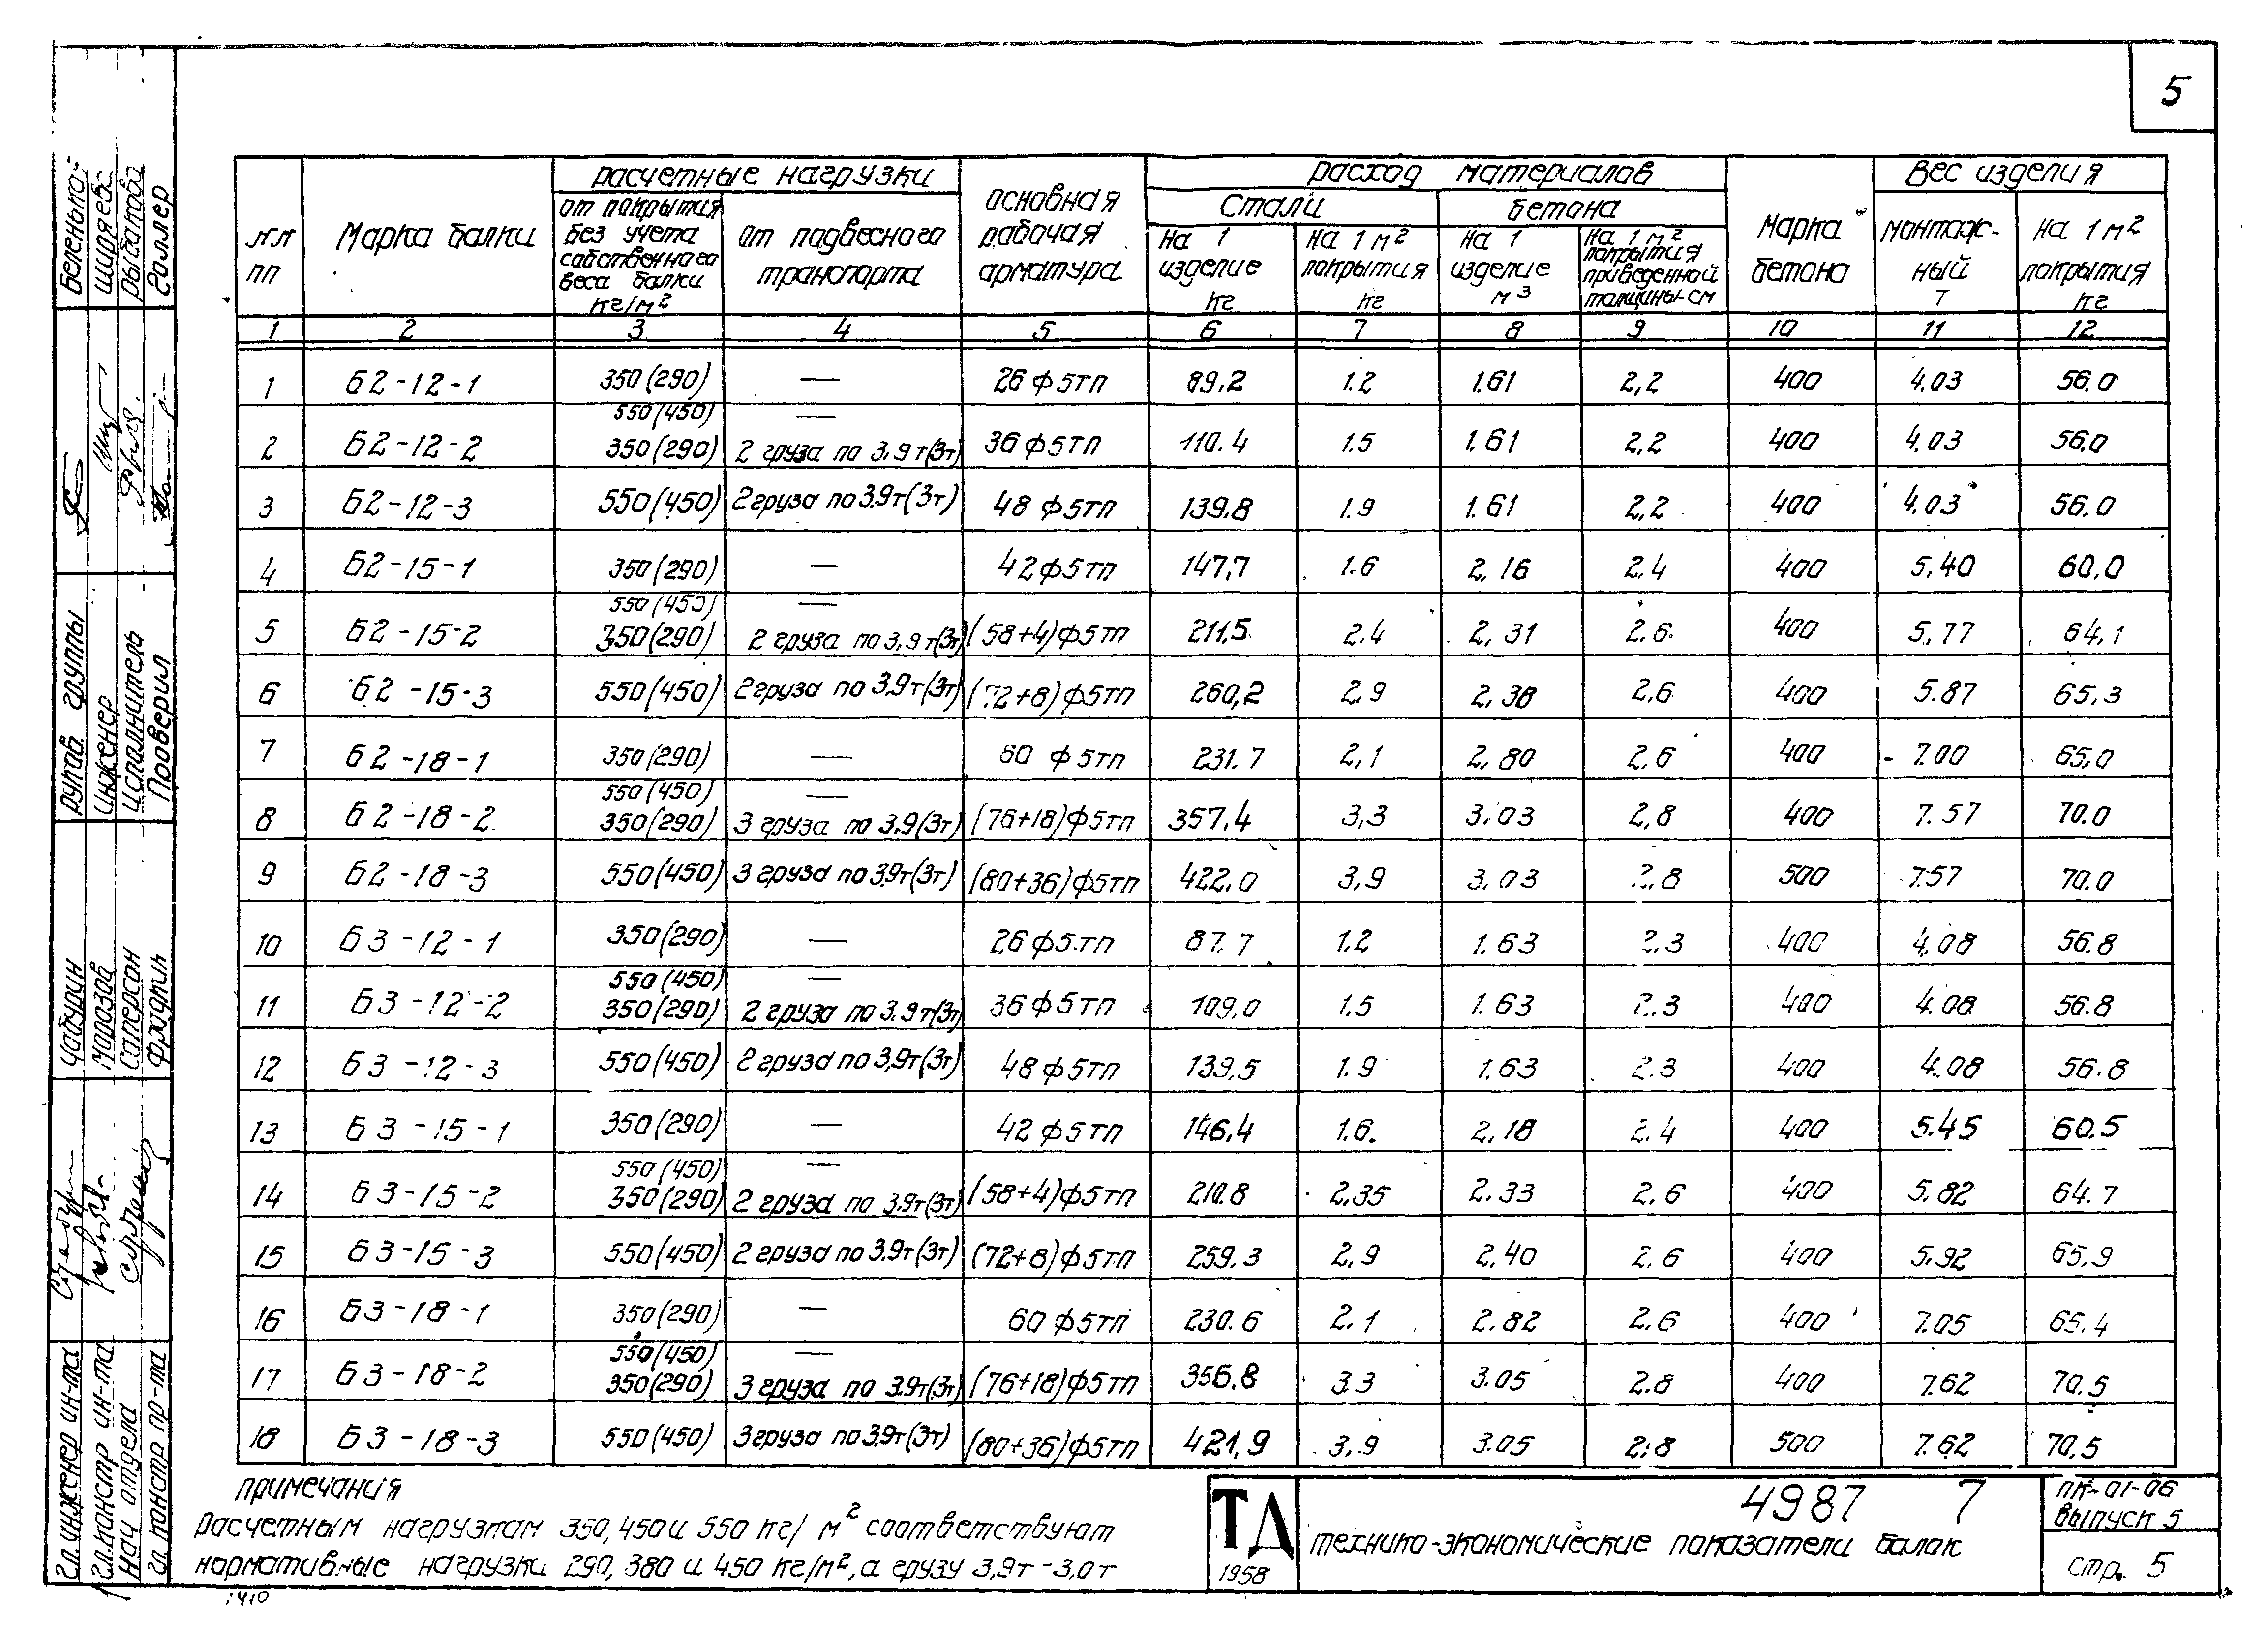 5
№№ пп
Марка балки
расчетные нагрузки
от покрытия без учета собственного веса балки кг/м²
от подвесного транспорта
основная рабочая арматура
расход материалов
Стали
бетона
на 1 изделие кг
на 1 м² покрытия кг
на 1 изделие м³
на 1 м² покрытия приведенной толщины-см
Марка бетона
Вес изделия
монтажный т
на 1 м² покрытия кг
1 2 3 4 5 6 7 8 9 10 11 12
1 Б2-12-1 350(290) — 26ф5тп 89,2 1.2 1.61 2,2 400 4.03 56.0
550(450) —
2 Б2-12-2 350(290) 2 груза по 3,9т(3т) 36ф5тп 110.4 1.5 1.61 2,2 400 4.03 56.0
3 Б2-12-3 550(450) 2 груза по 3.9т(3т) 48ф5тп 139.8 1.9 1.61 2,2 400 4.03 56.0
4 Б2-15-1 350(290) — 42ф5тп 147,7 1.6 2,16 2,4 400 5,40 60,0
550(450) —
5 Б2-15-2 350(290) 2 груза по 3,9т(3т) (58+4)ф5тп 211,5 2.4 2,31 2.6 400 5.77 64,1
6 Б2-15-3 550(450) 2 груза по 3.9т(3т) (72+8)ф5тп 260,2 2,9 2,38 2,6 400 5.87 65,3
7 Б2-18-1 350(290) — 60ф5тп 231.7 2,1 2,80 2.6 400 7.00 65,0
550(450) —
8 Б2-18-2 350(290) 3 груза по 3,9(3т) (76+18)ф5тп 357,4 3,3 3.03 2,8 400 7.57 70.0
9 Б2-18-3 550(450) 3 груза по 3,9т(3т) (80+36)ф5тп 422,0 3,9 3,03 2,8 500 7.57 70.0
10 Б3-12-1 350(290) — 26ф5тп 87.7 1.2 1.63 2.3 400 4.08 56.8
550(450) —
11 Б3-12-2 350(290) 2 груза по 3.9т(3т) 36ф5тп 109,0 1.5 1.63 2.3 400 4.08 56.8
12 Б3-12-3 550(450) 2 груза по 3,9т(3т) 48ф5тп 139,5 1.9 1.63 2.3 400 4.08 56.8
13 Б3-15-1 350(290) — 42ф5тп 146,4 1.6 2,18 2.4 400 5.45 60.5
550(450) —
14 Б3-15-2 350(290) 2 груза по 3.9т(3т) (58+4)ф5тп 210.8 2,35 2.33 2,6 400 5.82 64.7
15 Б3-15-3 550(450) 2 груза по 3.9т(3т) (72+8)ф5тп 259.3 2,9 2,40 2,6 400 5.92 65,9
16 Б3-18-1 350(290) — 60ф5тп 230.6 2.1 2.82 2,6 400 7.05 65.4
550(450) —
17 Б3-18-2 350(290) 3 груза по 3.9т(3т) (76+18)ф5тп 356.8 3.3 3.05 2.8 400 7.62 70,5
18 Б3-18-3 550(450) 3 груза по 3.9т(3т) (80+36)ф5тп 421,9 3,9 3.05 2,8 500 7.62 70,5
Примечания
Расчетным нагрузкам 350,450 и 550 кг/м² соответствуют
нормативные нагрузки 290, 380 и 450 кг/м², а грузу 3,9т-3,0т
ТД
1958
4987 7
Технико-экономические показатели балок
ПК-01-06
Выпуск 5
стр. 5
Беленькая
Ширяева
Рыбакова
Соллер
руков. группы
Инженер
Исполнитель
Проверил
Чабурин
Морозов
Саперсон
Фридкин
Гл. инженер ин-та
Гл. констр ин-та
Нач отдела
Гл. констр пр-та